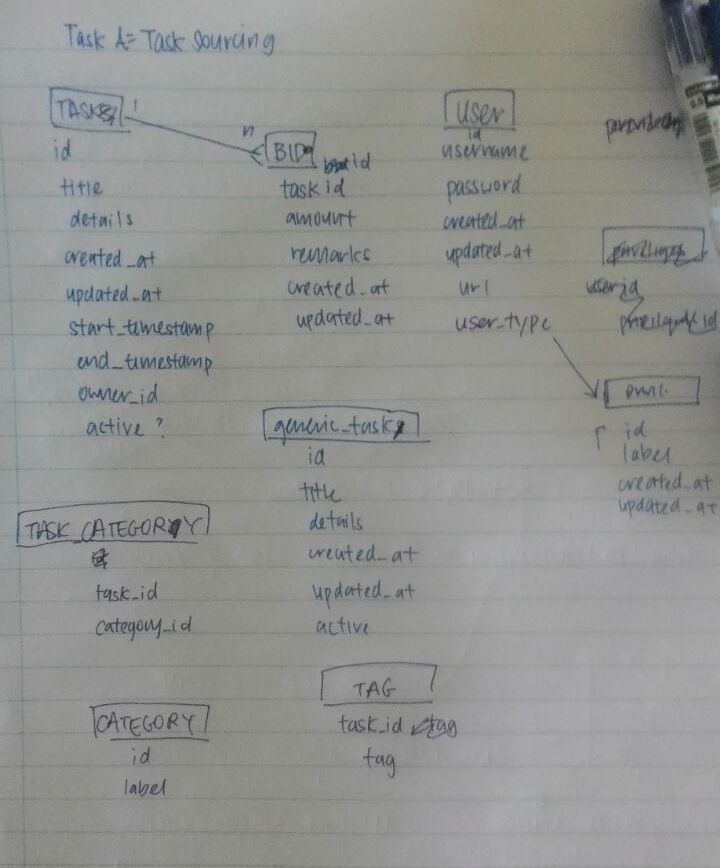 Task A = Task Sourcing
TASK
id
title
details
created_at
updated_at
start_timestamp
end_timestamp
owner_id
active ?
1
n
BID
id
task id
amount
remarks
created_at
updated_at
USER
id
username
password
created_at
updated_at
url
user_type
user id
id
label
created_at
updated_at
generic_task
id
title
details
created_at
updated_at
active
TASK_CATEGORY
task_id
category_id
CATEGORY
id
label
TAG
task_id
tag